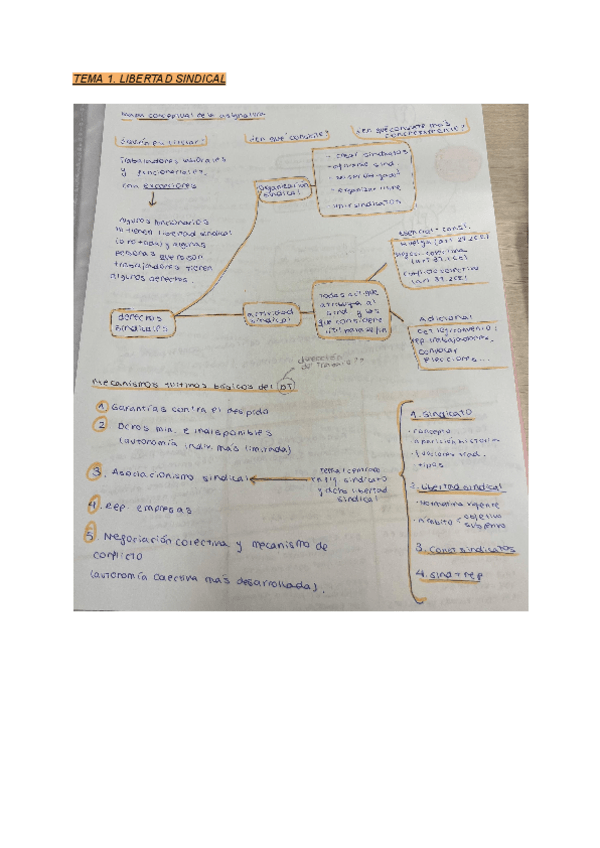 TEMA 1. LIBERTAD SINDICAL
Mapa conceptual de la asignatura
¿Quién es titular?
¿En qué consiste?
¿En qué consiste más concretamente?
Trabajadores laborales
y funcionariales,
con excepciones
algunos funcionarios
ni tienen libertad sindical
y algunas
personas que no son
trabajadores tienen
algunos aspectos.
organización
sindical
- crear sindicatos
- afiliarse sind.
- organizar libre
derechos
sindicales
actividad
sindical
Todas las que
atribuya al
sind y las
que considere
Esencial = const.
huelga (art 28.2CE)
negoc. colectiva
(art 37.1CE)
conflicto colectivo
(art 37.2CE)
Adicional
rep. trabajadores,
convocar
elecciones...
Mecanismos últimos básicos del DT
¿Derecho
del trabajo?
1 Garantías contra el despido
2 Dchos min. e indisponibles
(autonomía indiv. más limitada)
3. Asociacionismo sindical
Tema 1 centrado
en fig. sindicato
y dcho libertad
sindical
4. Rep. empresas
5. Negociación colectiva y mecanismo de
conflicto
(autonomía colectiva más desarrollada).
1. Sindicato
· concepto
· aparición histórica
· funciones trad.
· tipos
2. Libertad sindical
· Normativa vigente
· Ámbito objetivo
subjetivo
3. Const sindicatos
4. Sind + rep